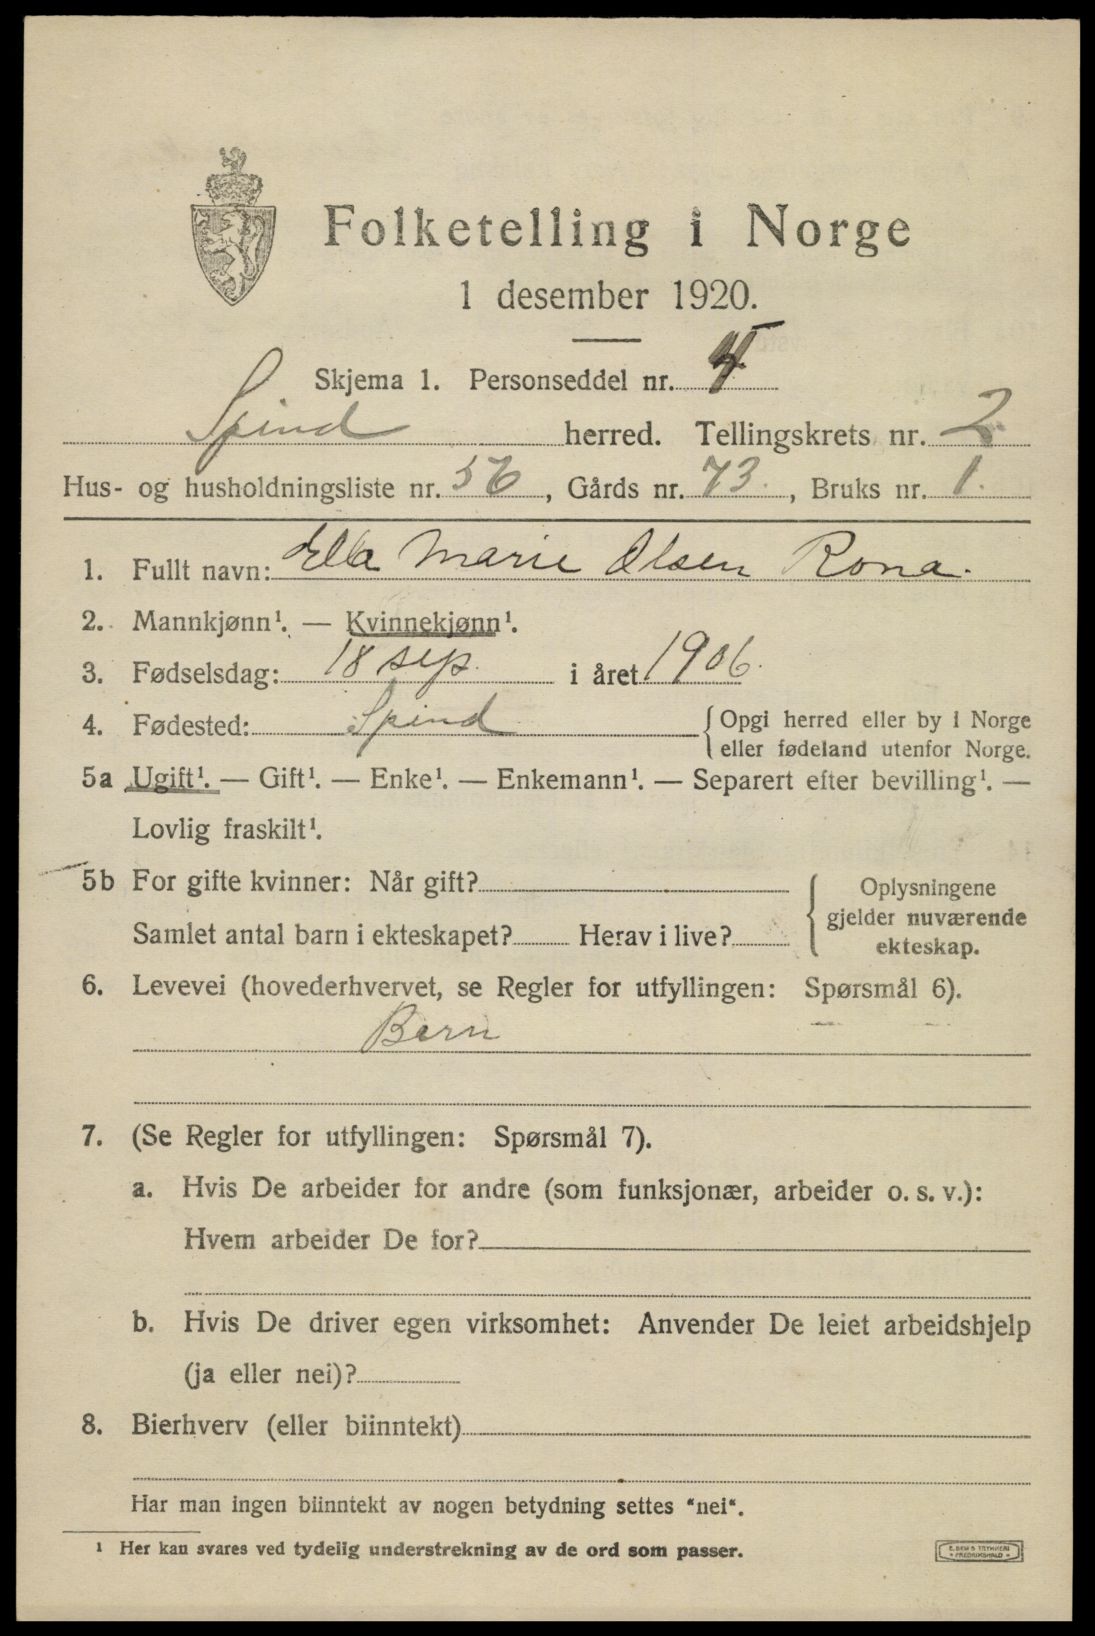 Folketelling i Norge
1 desember 1920.
Skjema 1. Personseddel nr.
Spind herred. Tellingskrets nr. 2
Hus- og husholdningsliste nr. 56, Gårds nr. 73, Bruks nr. 1.
1. Fullt navn: Ella Marie Olsen Rona.
2. Mannkjønn¹. — Kvinnekjønn¹.
3. Fødselsdag: 18 sep. i året 1906.
4. Fødested: Spind {Opgi herred eller by i Norge
eller fødeland utenfor Norge.
5a Ugift¹. — Gift¹. — Enke¹. — Enkemann¹. — Separert efter bevilling¹. —
Lovlig fraskilt¹.
5b For gifte kvinner: Når gift?
Samlet antal barn i ekteskapet? Herav i live?
{ Oplysningene
gjelder nuværende
ekteskap.
6. Levevei (hovederhvervet, se Regler for utfyllingen: Spørsmål 6).
Barn
7. (Se Regler for utfyllingen: Spørsmål 7).
a. Hvis De arbeider for andre (som funksjonær, arbeider o. s. v.):
Hvem arbeider De for?
b. Hvis De driver egen virksomhet: Anvender De leiet arbeidshjelp
(ja eller nei)?
8. Bierhverv (eller biinntekt)
Har man ingen biinntekt av nogen betydning settes "nei".
¹ Her kan svares ved tydelig understrekning av de ord som passer.